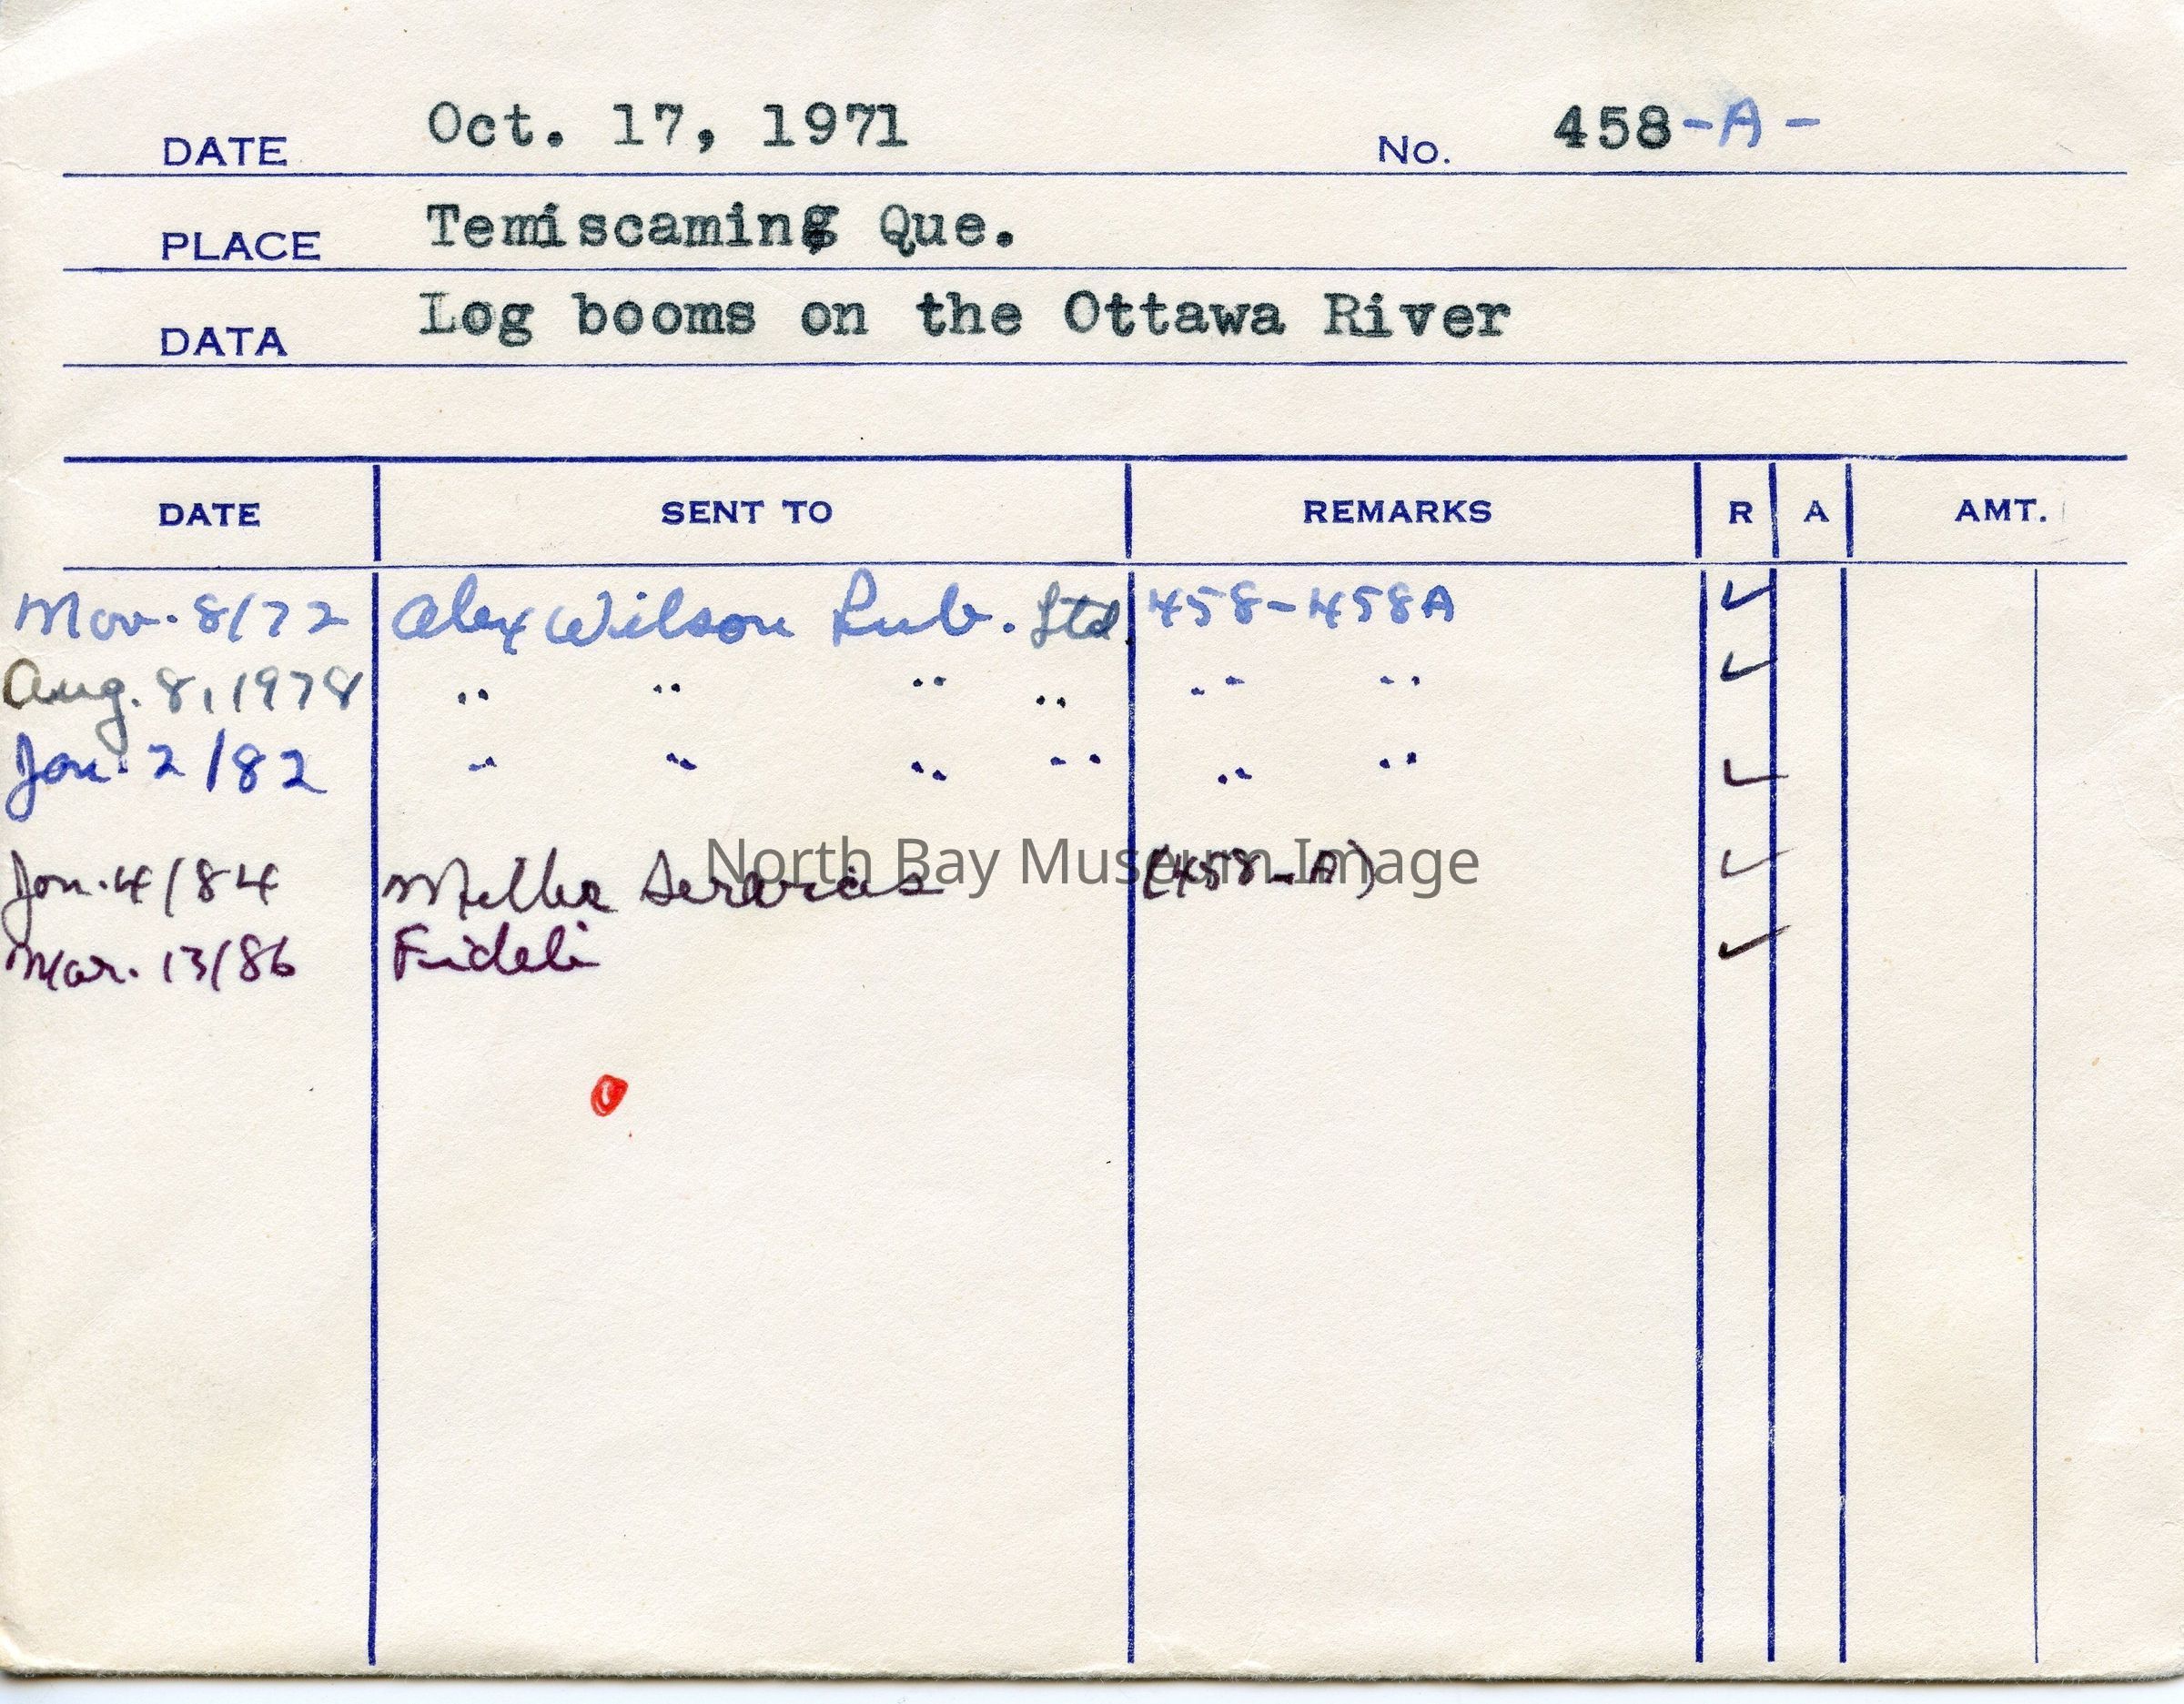 DATE Oct. 17, 1971 No. 458-A-
PLACE Temiscaming Que.
DATA Log booms on the Ottawa River
DATE SENT TO REMARKS R A AMT.
Nov. 8/72 Alex Wilson Pub. Ltd. 458-458A ✓
Aug. 8, 1978 " " " " " " ✓
Jan. 2/82 " " " " " " ✓
North Bay Museum Image
Jan. 4/84 Miller Services (458-A) ✓
Mar. 13/86 Fideli ✓